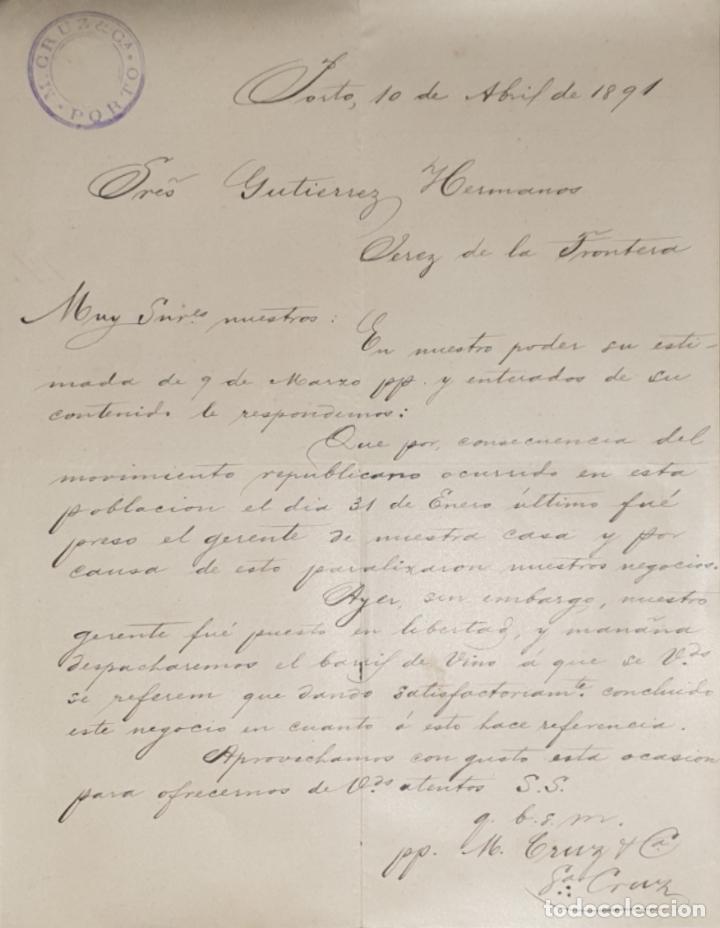 M. CRUZ & Cª. PORTO
Porto, 10 de Abril de 1891
Sres Gutierrez Hermanos
Jerez de la Frontera
Muy Snres nuestros:
En nuestro poder su esti-
mada de 9 de Marzo pp. y enterados de su
contenido le respondemos:
Que por, consecuencia del
movimiento republicano ocurrido en esta
poblacion el dia 31 de Enero último fué
preso el gerente de nuestra casa y por
causa de esto paralizaron nuestros negocios.
Ayer, sin embargo, nuestro
gerente fué puesto en libertad, y mañana
despacharemos el barril de Vino á que se Vds
se referem que dando satisfactoriamte concluido
este negocio en cuanto á esto hace referencia.
Aprovechamos con gusto esta ocasion
para ofrecernos de Vds atentos S.S.
q. b. s. m.
pp. M. Cruz & Cª
Cruz
todocoleccion.net